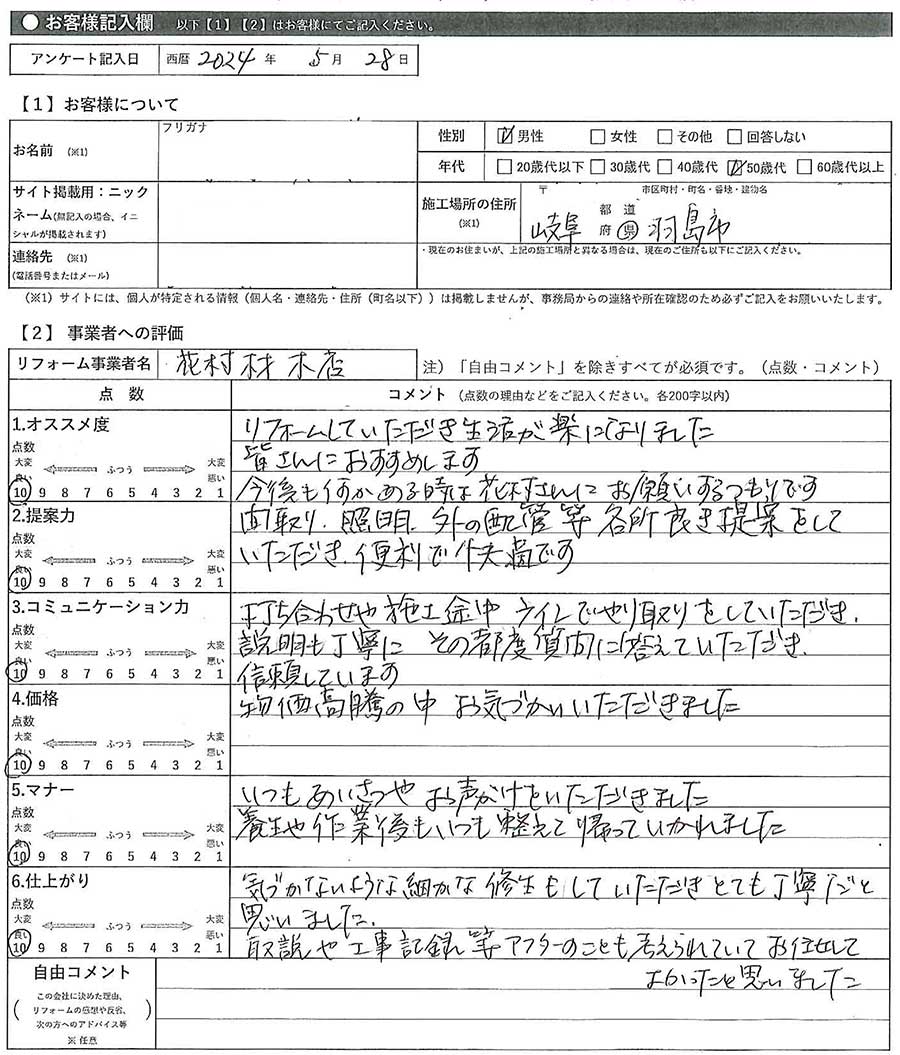 ● お客様記入欄 以下【1】【2】はお客様にてご記入ください。
アンケート記入日 西暦 2024 年 5 月 28 日
【1】お客様について
お名前 (※1) フリガナ
性別 ☑男性 □女性 □その他 □回答しない
年代 □20歳代以下 □30歳代 □40歳代 ☑50歳代 □60歳代以上
サイト掲載用：ニック
ネーム(無記入の場合、イニ
シャルが掲載されます)
施工場所の住所
(※1)
〒 市区町村・町名・番地・建物名
都 道
岐阜 府 県 羽島市
・現在のお住まいが、上記の施工場所と異なる場合は、現在のご住所も以下にご記入ください。
連絡先 (※1)
(電話番号またはメール)
(※1) サイトには、個人が特定される情報（個人名・連絡先・住所（町名以下））は掲載しませんが、事務局からの連絡や所在確認のため必ずご記入をお願いいたします。
【2】事業者への評価
リフォーム事業者名 花村材木店
注）「自由コメント」を除きすべてが必須です。（点数・コメント）
点 数
コメント（点数の理由などをご記入ください。各200字以内）
1.オススメ度
点数
大変 ふつう 大変
良い 悪い
10 9 8 7 6 5 4 3 2 1
リフォームしていただき生活が楽になりました
皆さんにおすすめします
今後も何かある時は花村さんにお願いするつもりです
2.提案力
点数
大変 ふつう 大変
良い 悪い
10 9 8 7 6 5 4 3 2 1
間取り、照明、外の配管等 各所良き提案をして
いただき、便利で快適です
3.コミュニケーション力
点数
大変 ふつう 大変
良い 悪い
10 9 8 7 6 5 4 3 2 1
打ち合わせや施工途中 ラインでやり取りをしていただき、
説明も丁寧に その都度質問に答えていただき、
信頼しています
4.価格
点数
大変 ふつう 大変
良い 悪い
10 9 8 7 6 5 4 3 2 1
物価高騰の中 お気づかいいただきました
5.マナー
点数
大変 ふつう 大変
良い 悪い
10 9 8 7 6 5 4 3 2 1
いつもあいさつや お声がけをいただきました
養生や作業後もいつも整えて帰っていかれました
6.仕上がり
点数
大変 ふつう 大変
良い 悪い
10 9 8 7 6 5 4 3 2 1
気づかないような細かな修生もしていただきとても丁寧だと
思いました、
取説や工事記録等アフターのことも考えられていてお任せして
よかったと思いました
自由コメント
この会社に決めた理由、
リフォームの感想や反省、
次の方へのアドバイス等
※ 任意